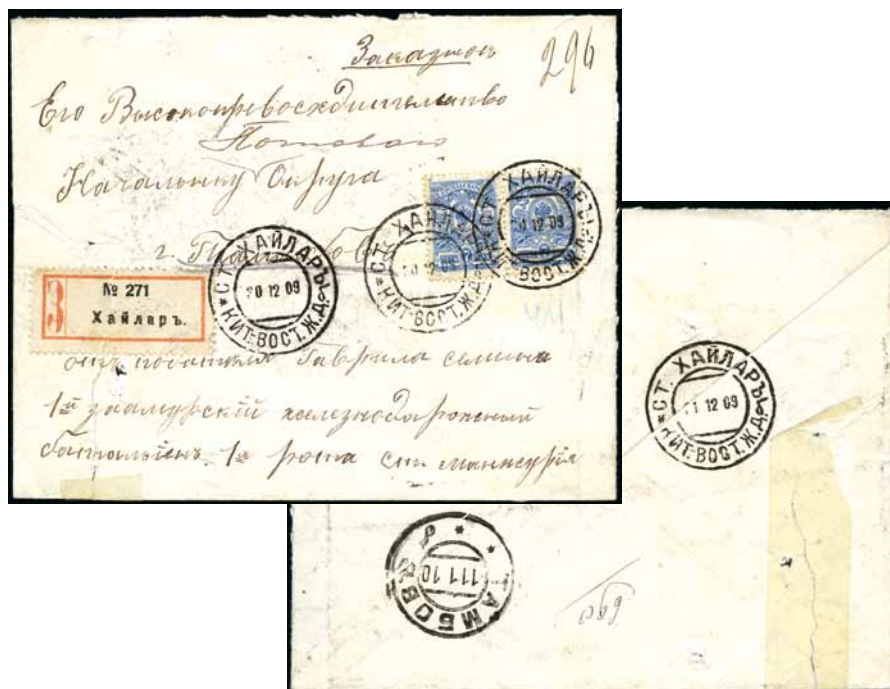 Заказное
296
Его Высокопревосходительство
Начальнику Округа
г.
№ 271
Хайларъ.
З
СТ. ХАЙЛАРЪ
КИТ.ВОСТ.Ж.Д.
20 12 09
СТ. ХАЙЛАРЪ
КИТ.ВОСТ.Ж.Д.
20 12 09
СТ. ХАЙЛАРЪ
КИТ.ВОСТ.Ж.Д.
12 09
Гаврила
1й заамурскій железнодорожный
баталіонъ 1я рота ст. манжурія
СТ. ХАЙЛАРЪ
КИТ.ВОСТ.Ж.Д.
12 09
ТАМБОВЪ
1 1 10